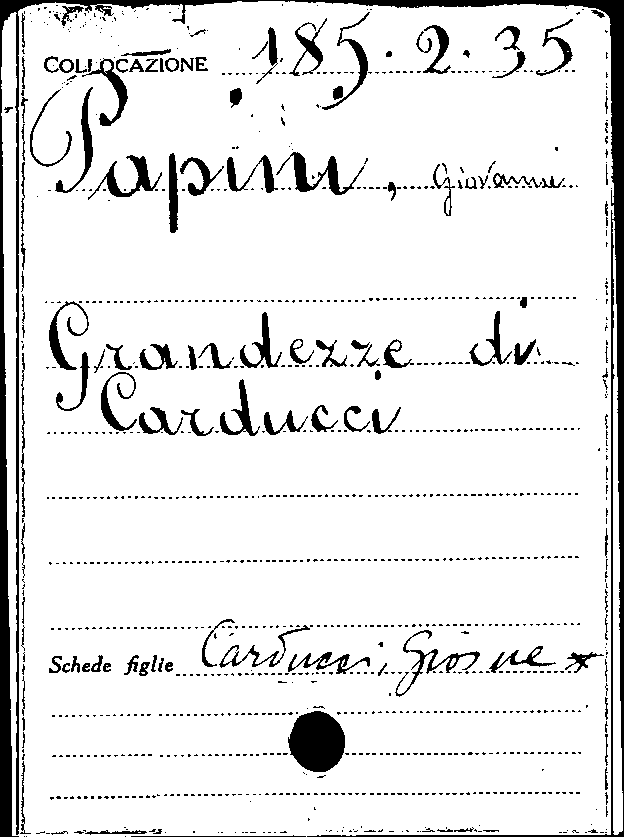 COLLOCAZIONE 185.2.35
Papini, Giovanni
Grandezze di
Carducci
Schede figlie Carducci, Giosue *